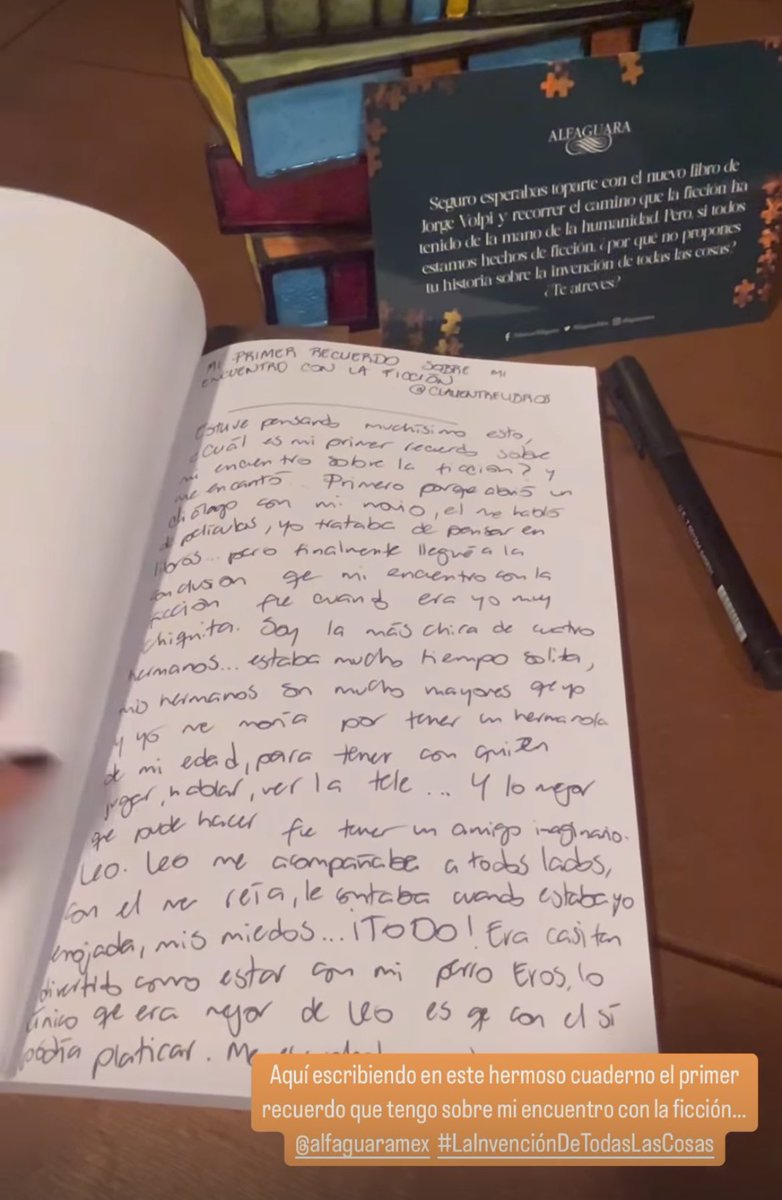 ALFAGUARA
Seguro esperabas toparte con el nuevo libro de
Jorge Volpi y recorrer el camino que la ficción ha
tenido de la mano de la humanidad. Pero, si todos
estamos hechos de ficción, ¿por qué no propones
tu historia sobre la invención de todas las cosas?
¿Te atreves?
MI PRIMER RECUERDO SOBRE MI
ENCUENTRO CON LA FICCIÓN
@CLAUENTRELIBROS
Estuve pensando muchísimo esto,
¿Cuál es mi primer recuerdo sobre
mi encuentro sobre la ficción? y
me encantó. Primero porqe abrió un
diálogo con mi novio, el me habló
de películas, yo trataba de pensar en
libros... pero finalmente llegué a la
conclusion qe mi encuentro con la
ficción fue cuando era yo muy
chiquita. Soy la más chica de cuatro
hermanos... estaba mucho tiempo solita,
mis hermanos son mucho mayores qe yo
y yo me moría por tener un hermano/a
de mi edad, para tener con quién
jugar, hablar, ver la tele... Y lo mejor
qe pude hacer fue tener un amigo imaginario.
Leo. Leo me acompañaba a todos lados,
con el me reía, le contaba cuando estaba yo
enojada, mis miedos... ¡TODO! Era casi tan
divertido como estar con mi perro Eros, lo
único qe era mejor de Leo es qe con el sí
podía platicar. Me
Aquí escribiendo en este hermoso cuaderno el primer
recuerdo que tengo sobre mi encuentro con la ficción...
@alfaguaramex #LaInvenciónDeTodasLasCosas